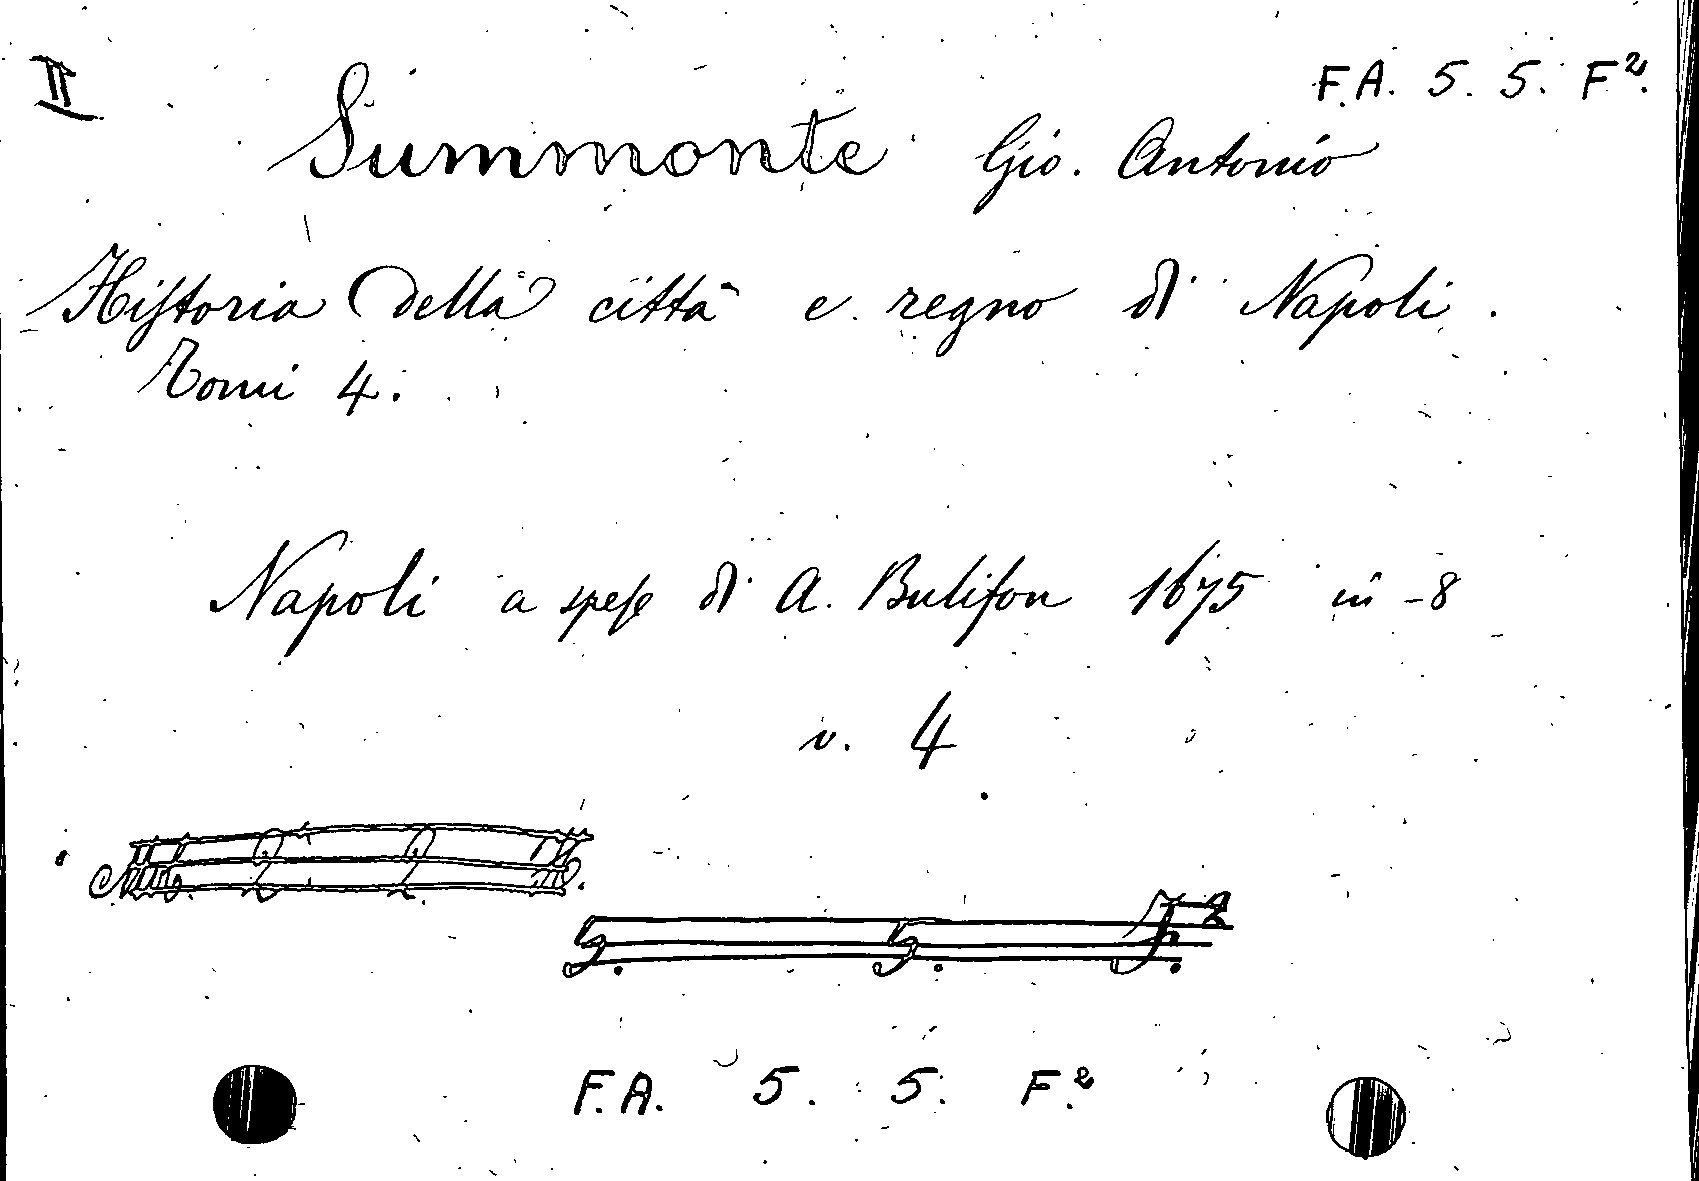 II F.A. 5. 5. F².
Summonte Gio. Antonio
Hiſtoria della città e regno di Napoli.
Tomi 4.
Napoli a speſe di A. Bulifon 1675 in-8
v. 4
5. 5. F.²
F.A. 5. 5. F.²